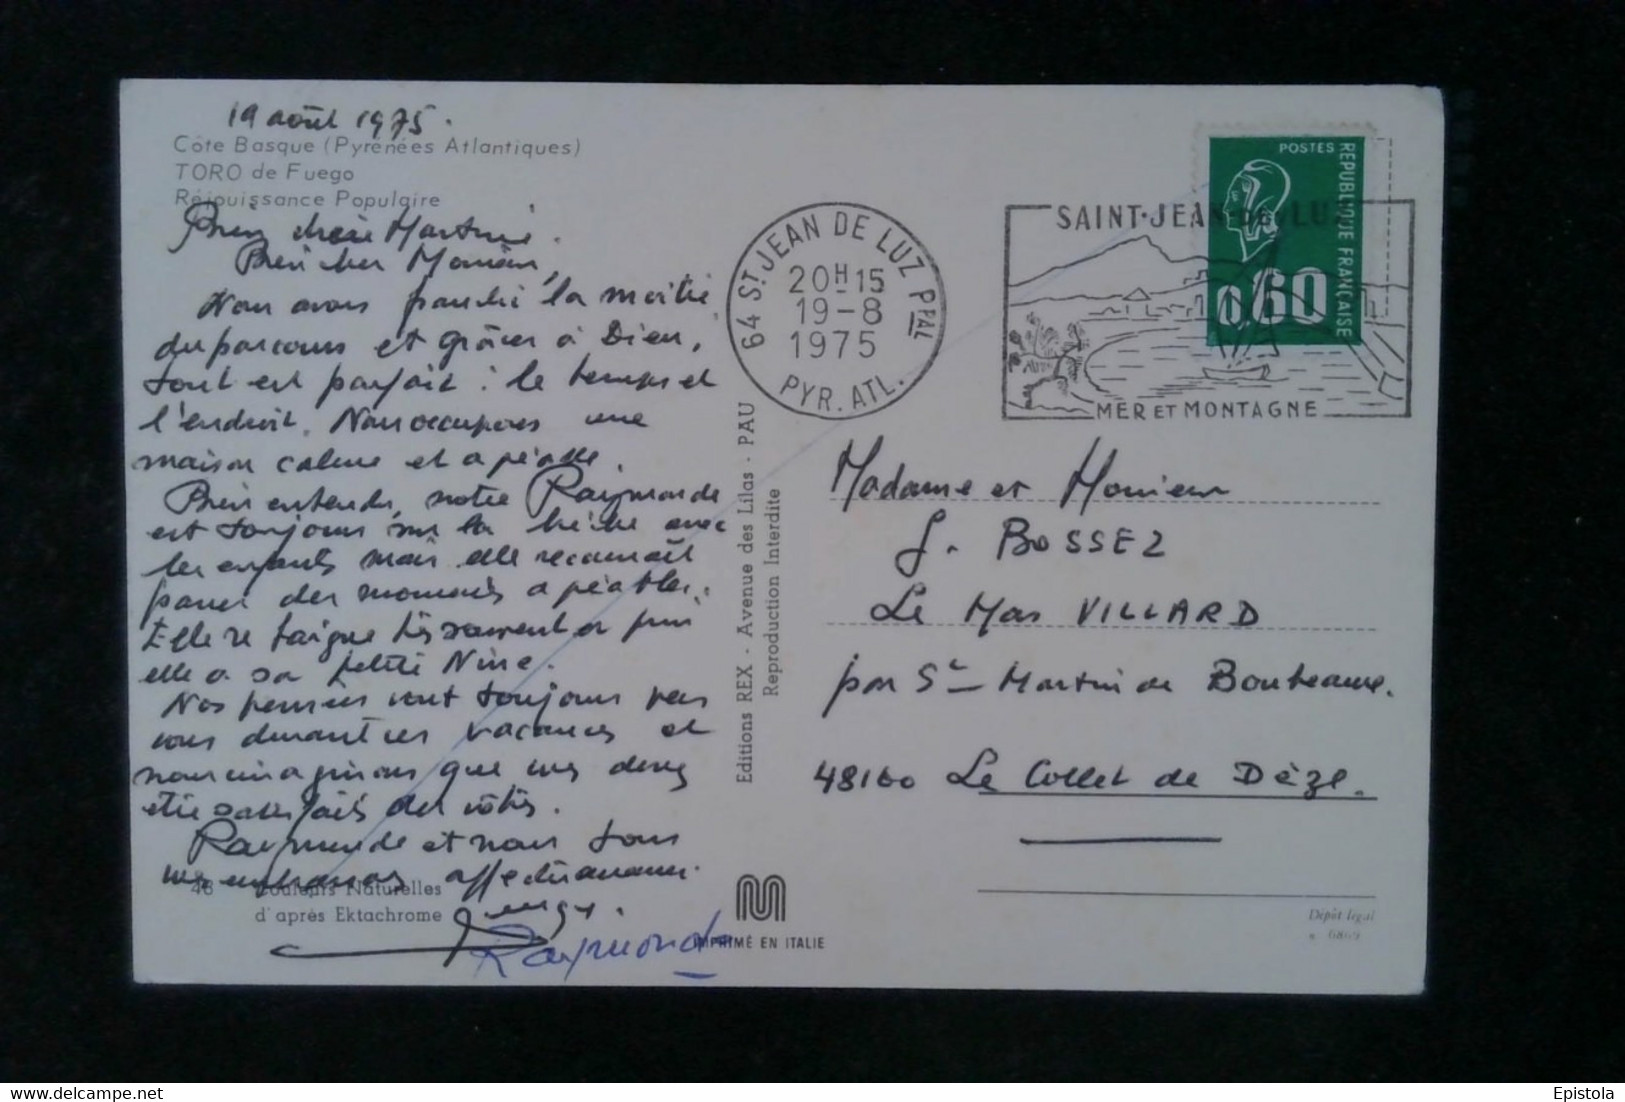 19 août 1975.
Côte Basque (Pyrénées Atlantiques)
TORO de Fuego
Réjouissance Populaire
Bien chère Martine.
Bien cher Monsieur,
Nous avons franchi la moitié
du parcours et grâces à Dieu,
tout est parfait : le temps et
l'endroit. Nous occupons une
maison calme et agréable.
Bien entendu, notre Raymonde
est toujours sur la brèche avec
les enfants mais elle reconnaît
passer des moments agréables.
Elle se baigne très souvent et puis
elle a sa petite Nine.
Nos pensées vont toujours vers
vous durant ces vacances et
nous imaginons que vous devez
être satisfaits des vôtres.
Raymonde et nous tous
vous embrassons affectueusement.
48 Couleurs Naturelles
d'après Ektachrome
Raymonde
Editions REX - Avenue des Lilas - PAU
Reproduction Interdite
IMPRIMÉ EN ITALIE
64 St JEAN DE LUZ Ppal
20H15
19-8
1975
PYR. ATL.
SAINT-JEAN-DE-LUZ
MER ET MONTAGNE
POSTES
REPUBLIQUE FRANÇAISE
0,60
Madame et Monsieur
J. BOSSEZ
Le Mas VILLARD
par St Martin de Boubeaux.
48160 Le Collet de Dèze.
Dépôt légal
Epistola
delcampe.net